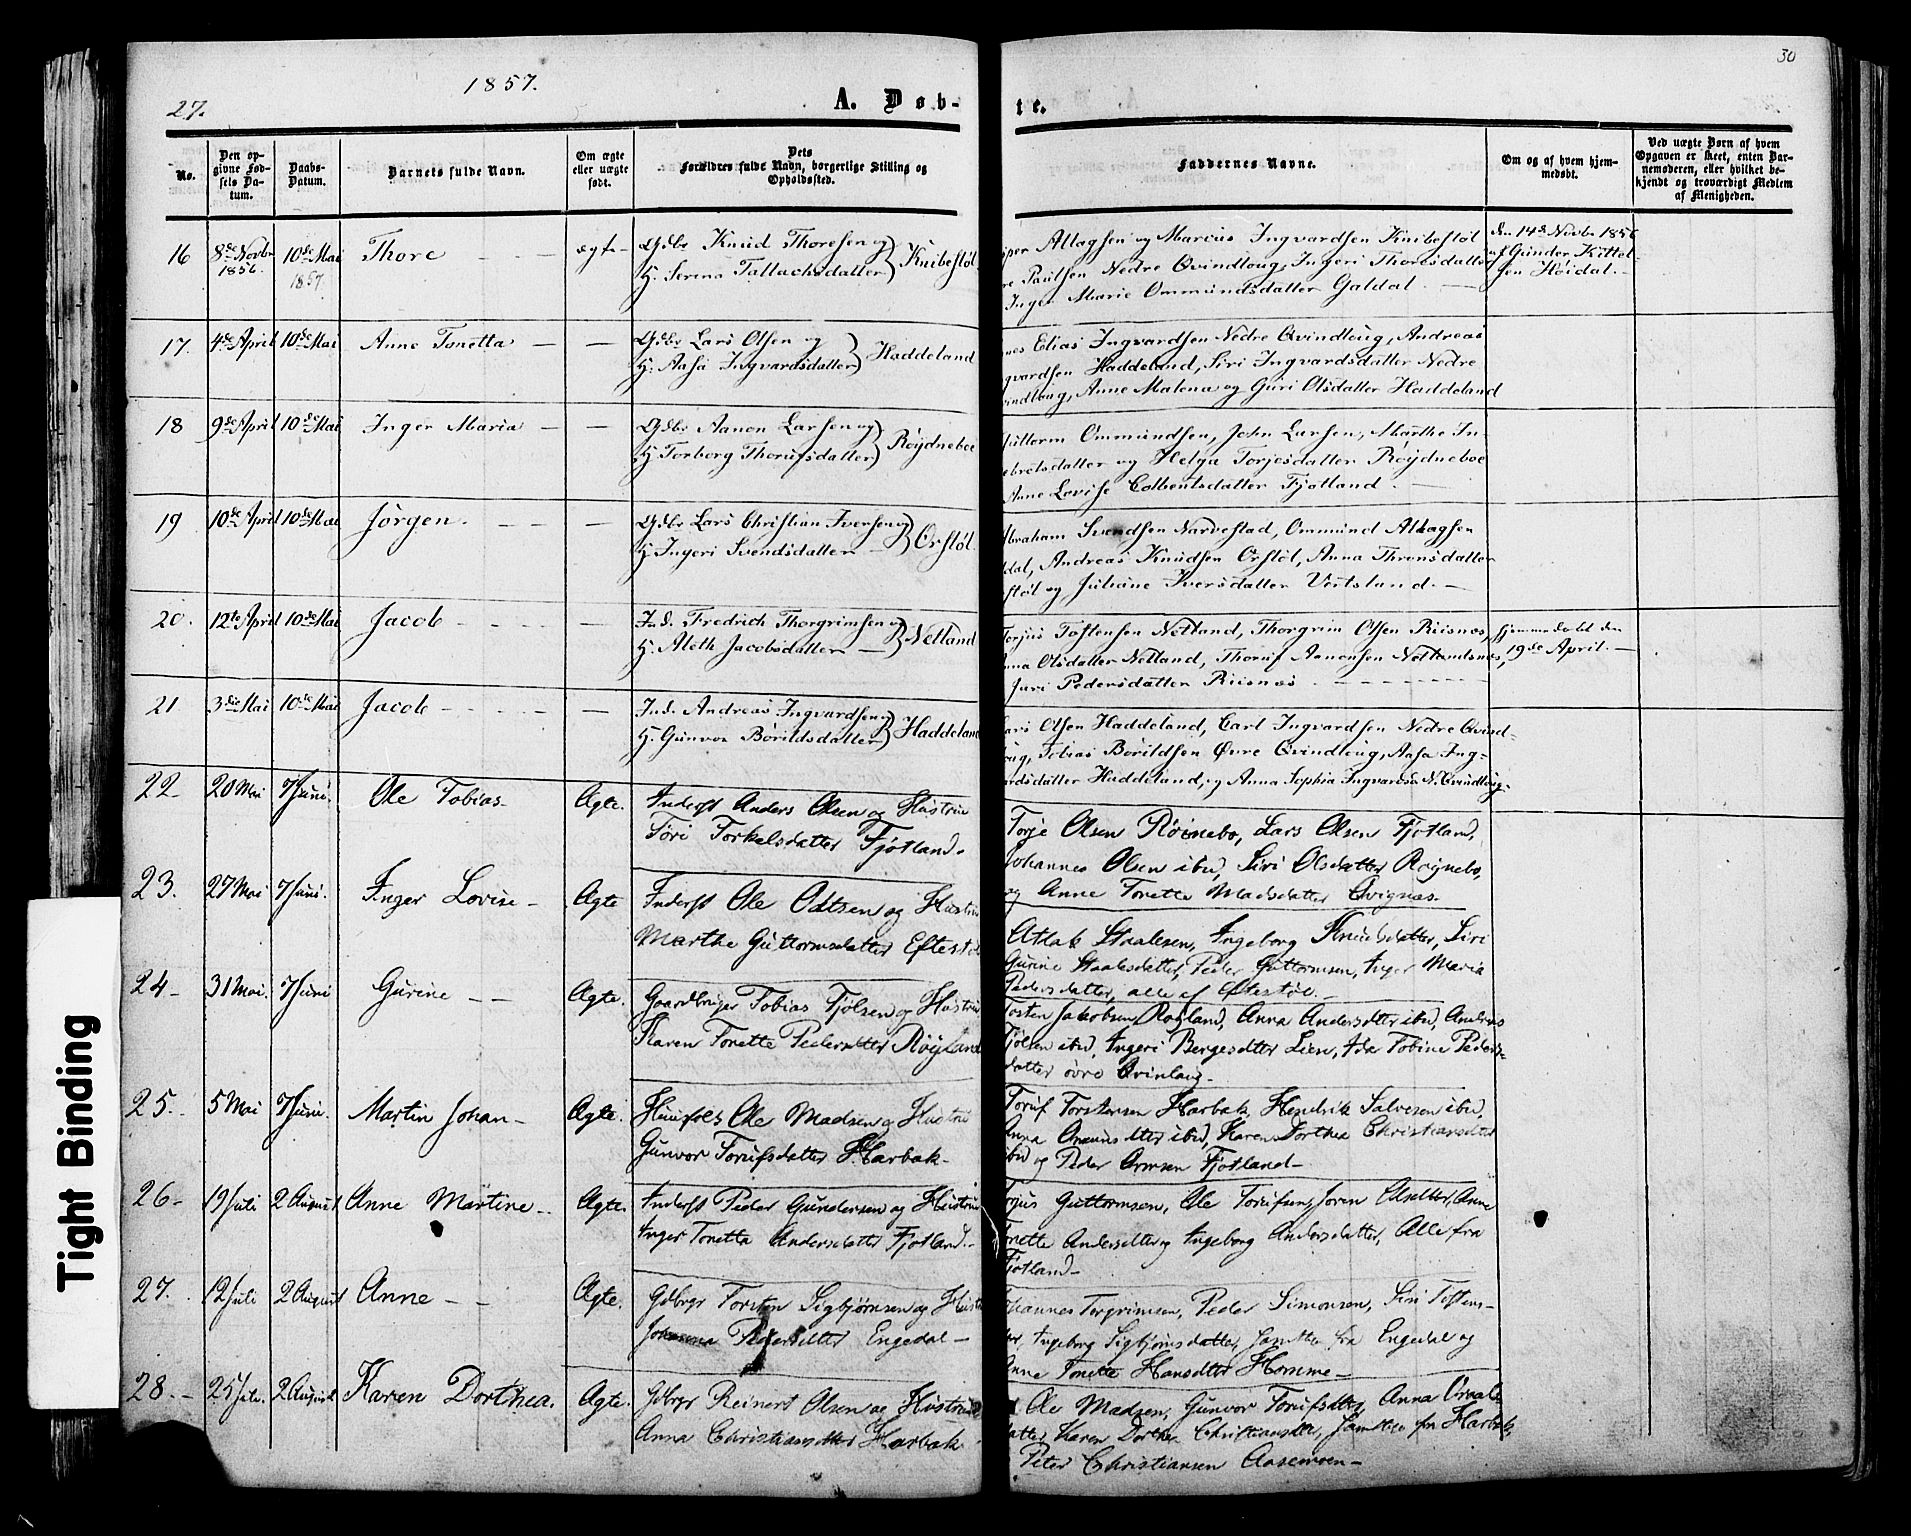 1857.
27.
30
A. Døb-
te.
No.
Den op-
givne Fød-
sels Da-
tum.
Daabs-
Datum.
Barnets fulde Navn.
Om ægte
eller uægte
født.
Dets
Forældres fulde Navn, borgerlige Stilling og
Opholdssted.
Faddernes Navne.
Om og af hvem hjem-
medøbt.
Ved uægte Børn af hvem
Opgaven er skeet, enten Bar-
nemoderen, eller hvilket be-
kjendt og troværdigt Medlem
af Menigheden.
16 8de Novbr 1856. 10de Mai 1857. Thore ægte
Gdbr Knud Thoresen og
H. Serina Tallachsdatter Knibestøl
Atlagsen og Marcus Ingvardsen Knibestøl
Paulsen Nedre Qvindloug, Ingeri Thoresdatter
Inger Marie Ommundsdatter Galdal.
den 14de Novbr 1856
af Gunder Kittel-
sen Høidal.
17. 4de April 10de Mai Anne Tonetta
Gdbr Lars Olsen og
H. Aasa Ingvardsdatter Haddeland
Elias Ingvardsen Nedre Qvindloug, Andreas
Haddeland, Siri Ingvardsdatter Nedre
Anne Malena og Guri Olsdatter Haddeland
18 9de April 10de Mai Inger Maria
Gdbr Aanon Larsen og
H. Torborg Thorufsdatter Røydneboe
Ommundsen, John Larsen, Marthe In-
og Helga Torjesdatter Røydneboe
Anne Lovise Colbentsdatter Fjotland.
19 10de April 10de Mai Jørgen.
Gdbr Lars Christian Iversen og
H. Ingeri Svendsdatter Ørstøl.
Svendsen Narvestad, Ommund Atlagsen
Andreas Knudsen Ørstøl, Anna Thronsdatter
og Juliane Iversdatter Vertsland.
20. 12te April 10de Mai Jacob
Ind. Fredrich Thorgrimsen og
H. Aleth Jacobsdatter Netland
Torjus Tostensen Netland, Thorgrim Olsen Riisnes,
Olsdatter Netland, Thoruf Aanensen Netlandsnes,
Juri Pedersdatter Riisnes
hjemmedøbt den
19de April.
21 3die Mai 10de Mai Jacob
Ind. Andreas Ingvardsen og
H. Gunvor Borildsdatter Haddeland
Olsen Haddeland, Carl Ingvardsen Nedre Qvind-
Tobias Borildsen Øvre Qvindloug, Aasa Ing-
Haddeland, og Anna Sophia Ingvardsd. N. Qvindloug.
22 20 Mai 7 Juni. Ole Tobias Ægte.
Inderst Anders Olsen og Hustrue
Siri Torkelsdatter Fjotland.
Torje Olsen Røinebo, Lars Olsen Fjotland,
Johannes Olsen ibid, Siri Olsdatter Røynebo,
og Anne Tonette Madsdatter Qvignæs.
23. 27 Mai 7 Juni. Inger Lovise Ægte
Inderst Ole Odtsen og Hustrue
Marthe Guttormsdatter Eftestøl
Atlak Staalesen, Ingeborg Knudsdatter, Siri
Gurine Staalesdatter, Peder Guttormsen, Inger Maria
Pedersdatter, alle af Eftestøl.
24 31 Mai. 7 Juni Gurine Ægte.
Gaardbruger Tobias Fjølsen og Hustrue
Karen Tonette Pedersdatter Røyland
Tosten Jakobsen Røyland, Anna Andersdtter ibid, Andreas
Fjølsen ibid, Ingeri Bergesdtter Lien, Ida Tobine Peders-
datter øvre Qvinlaug.
25. 5 Mai 7 Juni. Martin Johan Ægte.
Huusfolk Ole Madsen og Hustrue
Gunvor Torufsdatter Harbak.
Toruf Torstensen Harbak, Hendrik Salvesen ibid,
Anna ibid, Karen Dorthea Christiansdtter
ibid og Peder Fjotland
26 19 Juli 2 August Anne Martine Ægte.
Inderst Peder Gundersen og Hustrue
Inger Tonetta Andersdatter Fjotland.
Torjus Guttormsen, Ole Torufsen, Joren Olsdtter, Anne
Tonette Andersdtter og Ingeborg Andersdatter, Alle fra
Fjotland
27. 12 Juli 2 August Anne Ægte.
Gdbrgr Torsten Sigbjørnsen og Hustrue
Johanna Pedersdtter Engedal
Johannes Torgrimsen, Peder Simonsen, Siri Tostens-
Ingeborg Sigbjørnsdatter, Samtlige fra Engedal og
Anne Tonette Hansdtter Homme
28. 25 Juli. 2 August Karen Dorthea. Ægte.
Gdbrgr Reinert Olsen og Hustrue
Anna Christiansdtter Harbak
Ole Madsen, Gunvor Torufsdtter, Anna
Karen Dorthea Christiansdtr, Samtlige fra Harbak,
Peter Christiansen Aasemoen
Tight Binding